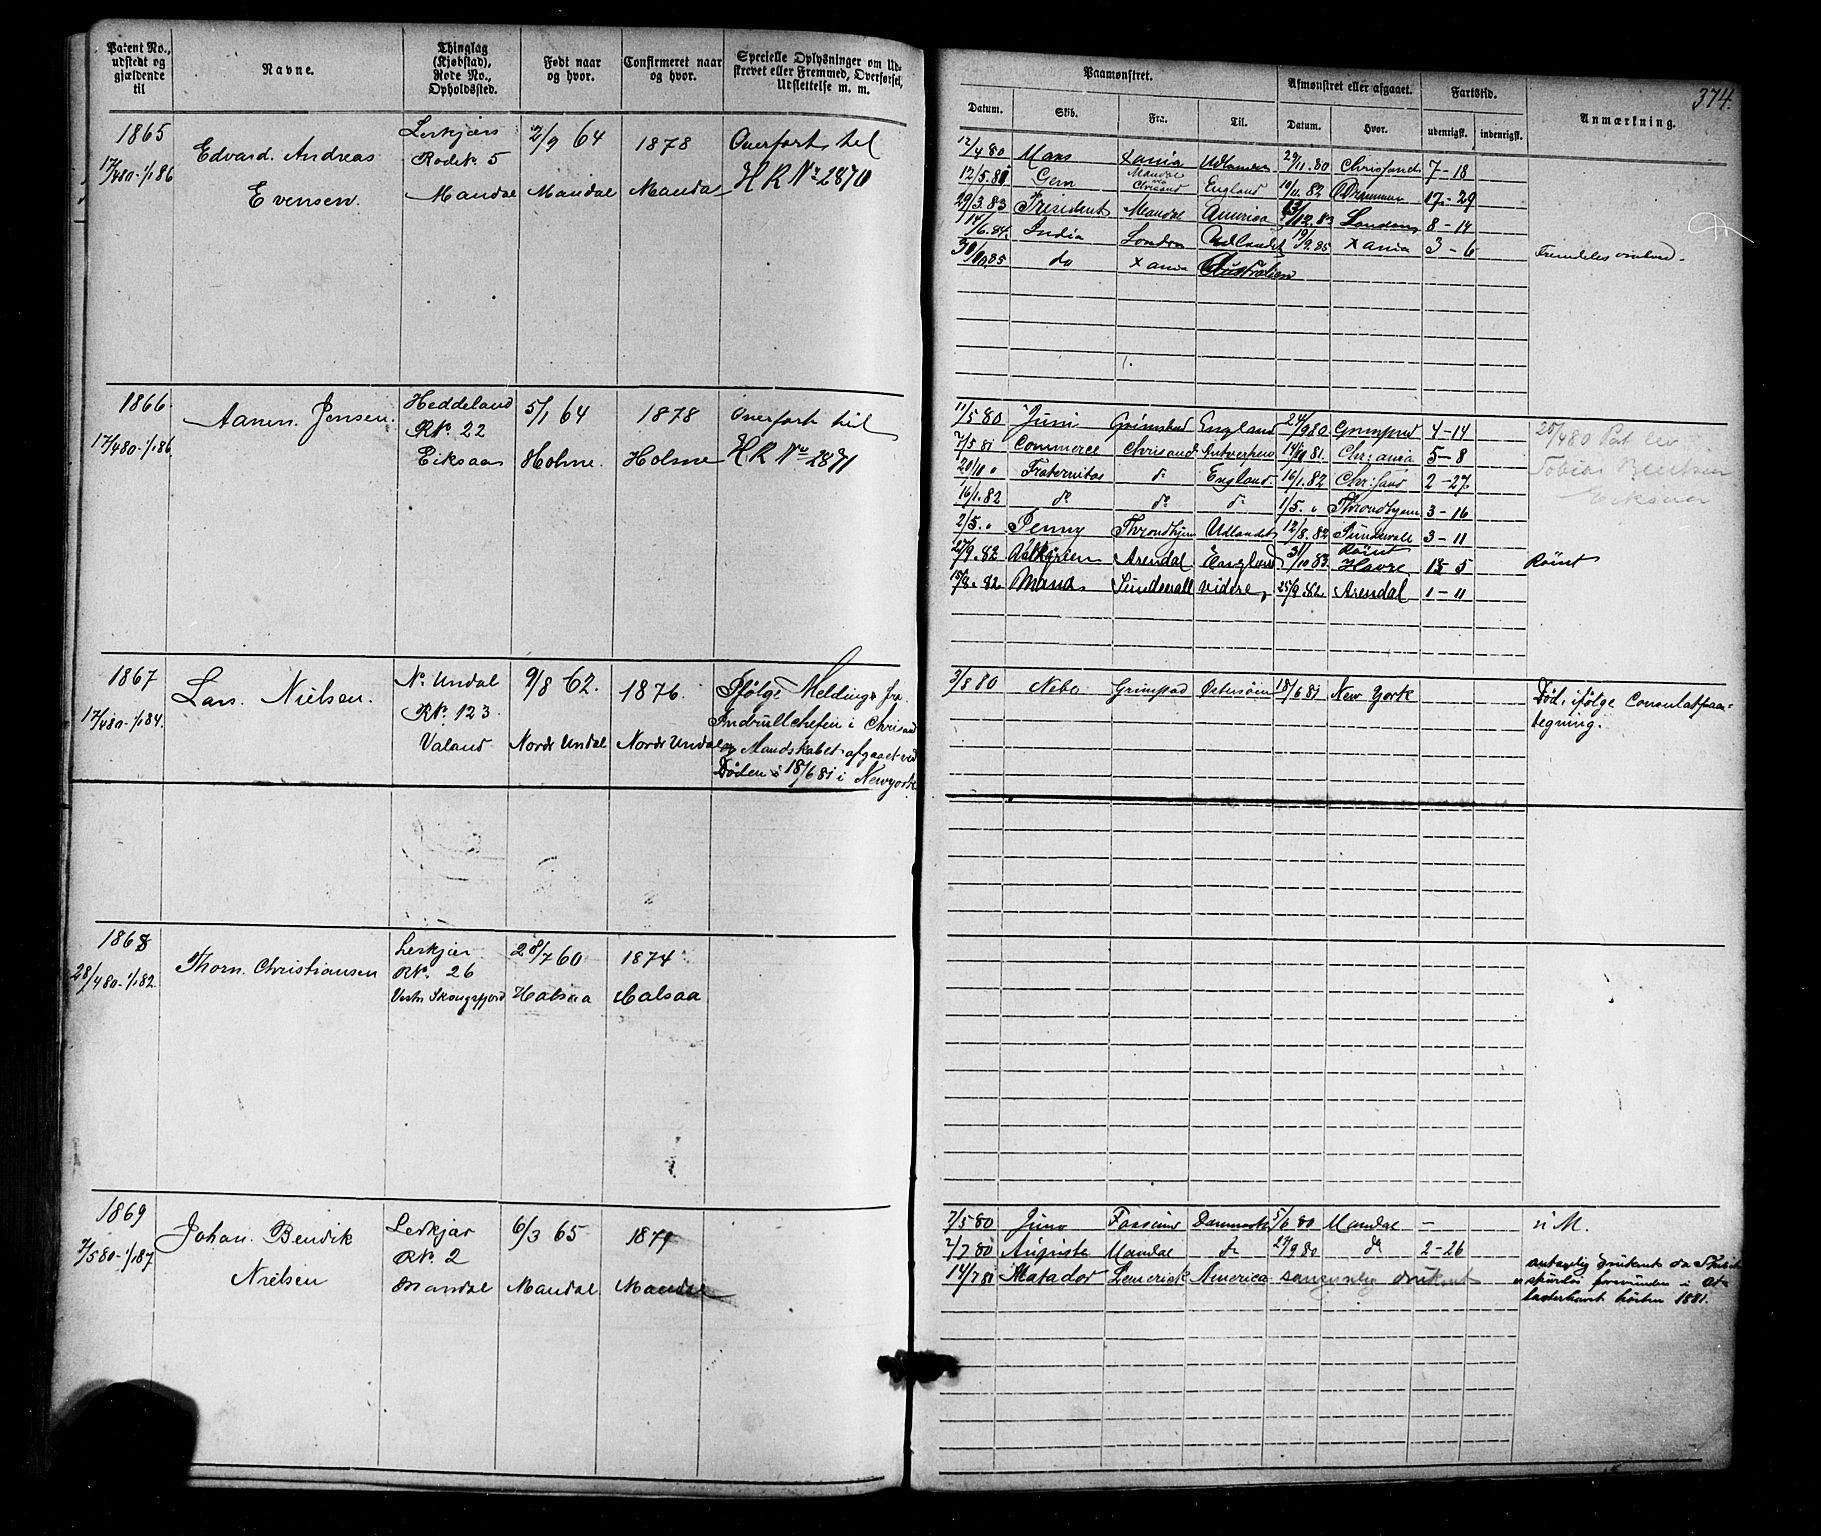 Patent No., udstedt og gjældende til
Navne.
Thinglag (Kjøbstad), Rode No., Opholdssted.
Født naar og hvor.
Confirmeret naar og hvor.
Specielle Oplysninger om Udskrevet eller Fremmed, Overførsel, Udslettelse m. m.
Paamønstret.
Afmønstret eller afgaaet.
Fartstid.
Anmærkning.
374.
Datum. Skib. Fra: Til. Datum. Hvor. udenrigsk. indenrigsk.
1865
17/4 80-1/1 86
Edvard Andreas
Evensen
Leskjær
Rode No 5
Mandal
2/9 64
Mandal
1878
Mandal
Overført til
HR No 2870
12/4 80 Mans Xania Udlandet 29/11.80 Chrissand 7-18
12/5.81 Gem Mandal Chrisand England 10/11.82 Drammen 17-29
29/3.83 President Mandal America 12.83 London 8-14
14/6.84. India London Udlandet 19/9.85 Xania 3-6
30/10.85 do Xania Australien
Fremdeles ombord.
1866
17/4 80-1/1 86
Aanen Jensen
Heddeland
RNo. 22
Eiksaa
5/1 64
Holme.
1878
Holme
Overført til
HR No 2871
11/5 80 Juni Grimstad England 24/9 80 Grimstad 4-14
7/5 81 Commerce Chrisand Antwerpen 14/9 81. Chr:ania 5-8
20/11 " Fraternitas do England 16/1.82 Chr:sand 2-27
16/1.82 do do do 1/5. " Throndhjem 3-16
2/5. " Penny Throndhjem Udlandet 12/8.82 Sundsvall 3-11
27/9.82 Valkyrien Arendal England 31/10 83 Rømt Havre 13-5
15/8.82 Mand Sundsvall videre, 25/9.82. Arendal 1-11
25/4 80 Pat lev
Tobias
Eiksaa
Rømt
1867
17/4 80-1/1 84.
Lars Nielsen.
No. Undal
RNo. 123
Valand
9/8 62.
Nordr Undal
1876.
Nordr Undal
Ifølge Melding fra
Indrullchefen i Chrisand
Mandskabet afgaaet ved
Døden 18/6 81 i Newyork
3/8 80 Nebo Grimstad Østersøen 18/6 81 New York
Død, ifølge Consulatspaa-
tegning.
1868
28/4 80-1/1 82.
Thorn. Christiansen
Leskjær
RNo. 26
Vestr Skougsfjord
28/7 60
Halsaa
1874
Halsaa
1869
7/5 80-1/1 87
Johan Bendik
Nielsen
Leskjær
RNo. 2
Mandal
6/3 65
Mandal
1879
Mandal
7/5 80 Juno Danmark 5/6 80 Mandal -
2/7 80 Auguste Mandal do 27/9 80 do 2-26
14/7 81 Matador Limerick America sandsynlig druknet
i M.
antagelig druknet da Skibet
er sporløs forsvunden i At-
lanterhavet høsten 1881.